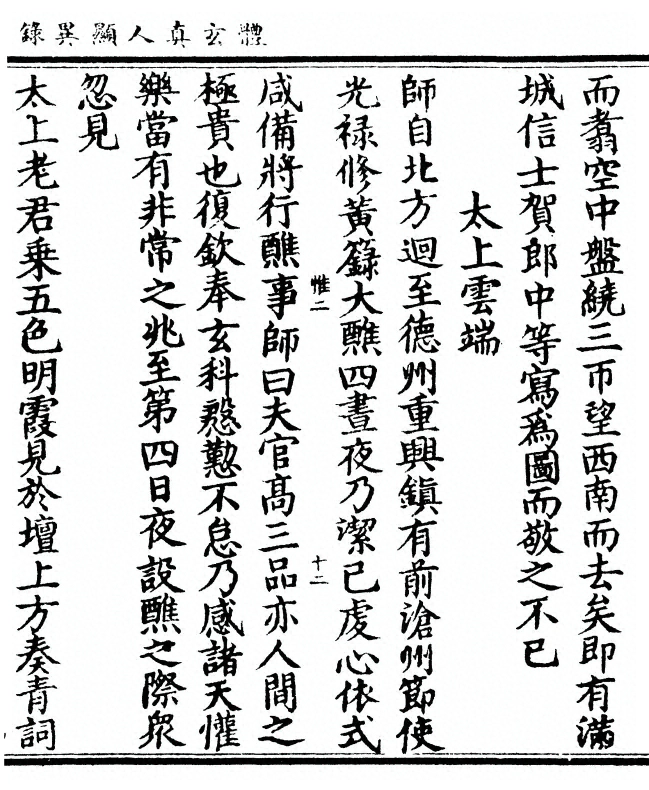 體玄真人顯異錄
而翥空中盤繞三帀望西南而去矣即有滿
城信士賀郎中等寫爲圖而敬之不已
太上雲端
師自北方迴至德州重興鎮有前滄州節使
光祿修黃籙大醮四晝夜乃潔己虔心依式
惟二
十二
咸備將行醮事師曰夫官高三品亦人間之
極貴也復欽奉玄科慇懃不怠乃感諸天懽
樂當有非常之兆至第四日夜設醮之際衆
忽見
太上老君乗五色明霞見於壇上方奏青詞